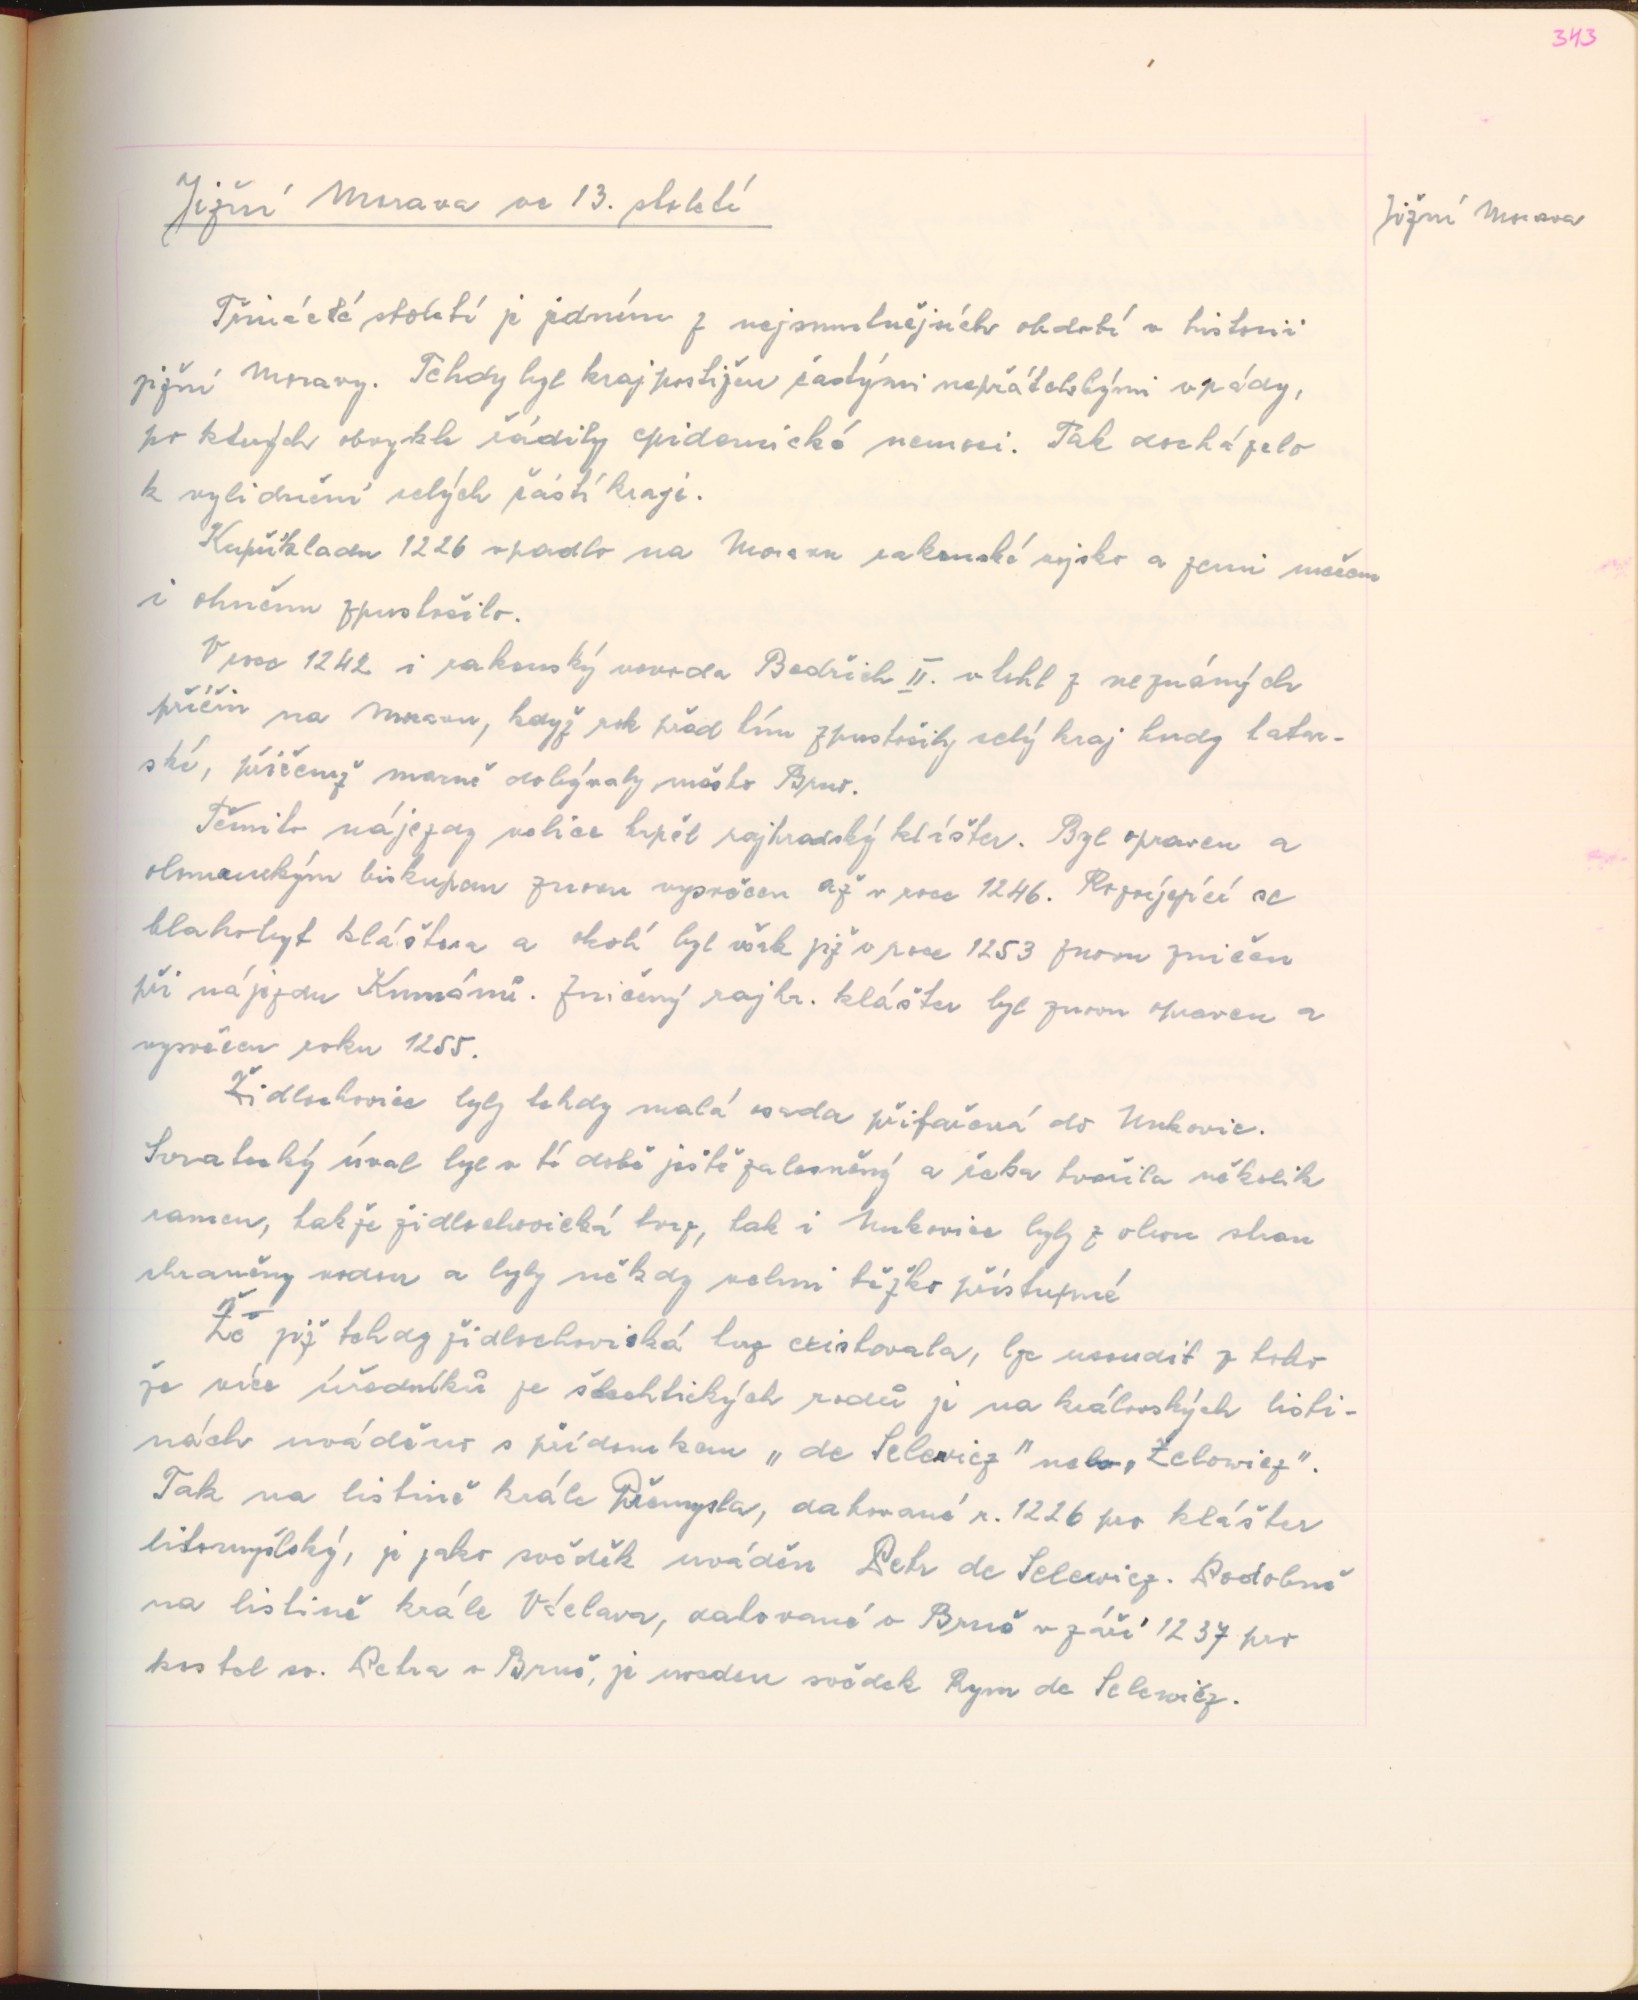 343
Jižní Morava ve 13. století
Jižní Morava
Třinácté století je jedním z nejsmutnějších období v historii
jižní Moravy. Tehdy byl kraj postižen častými nepřátelskými vpády,
po kterých obvykle řádily epidemické nemoci. Tak docházelo
k vylidnění celých částí kraje.
Kupříkladu 1226 vpadlo na Moravu rakouské vojsko a zemi mečem
i ohněm zpustošilo.
V roce 1242 i rakouský vévoda Bedřich II. vtrhl z neznámých
příčin na Moravu, když rok před tím zpustošily celý kraj hordy tatar-
ské, přičemž marně dobývaly město Brno.
Těmito nájezdy velice trpěl rajhradský klášter. Byl opraven a
olomouckým biskupem znovu vysvěcen až v roce 1246. Rozvíjející se
blahobyt kláštera a okolí byl však již v roce 1253 znovu zničen
při nájezdu Kumánů. Zničený rajhr. klášter byl znovu opraven a
vysvěcen roku 1255.
Židlochovice byly tehdy malá osada přifařená do Unkovic.
Svratecký úval byl v té době ještě zalesněný a řeka tvořila několik
ramen, takže židlochovická tvrz, tak i Unkovice byly z obou stran
chráněny vodou a byly někdy velmi těžko přístupné
Že již tehdy židlochovická tvrz existovala, lze usoudit z toho
že více úředníků ze šlechtických rodů je na královských listi-
nách uváděno s přídomkem „de Selewicz" nebo „Želowicz".
Tak na listině krále Přemysla, datované r. 1226 pro klášter
litomyšlský, je jako svěděk uváděn Petr de Selewicz. Podobně
na listině krále Václava, datované v Brně v září 1237 pro
kostel sv. Petra v Brně, je uveden svědek Rym de Selewicz.